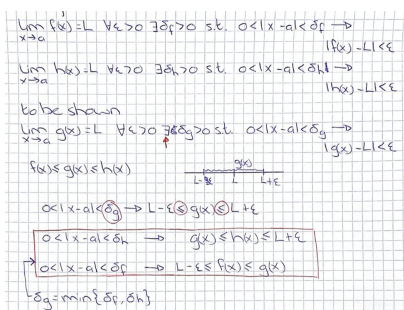 lim f(x)=L ∀ε>0 ∃δf>0 s.t. 0<|x-a|<δf →
x→a
|f(x)-L|<ε
lim h(x)=L ∀ε>0 ∃δh>0 s.t. 0<|x-a|<δh →
x→a
|h(x)-L|<ε
to be shown
lim g(x)=L ∀ε>0 ∃δg>0 s.t. 0<|x-a|<δg →
x→a
|g(x)-L|<ε
f(x)≤g(x)≤h(x)
g(x)
L-ε L L+ε
0<|x-a|<δg → L-ε≤g(x)≤L+ε
0<|x-a|<δh → g(x)≤h(x)≤L+ε
0<|x-a|<δf → L-ε≤f(x)≤g(x)
δg=min{δf,δh}